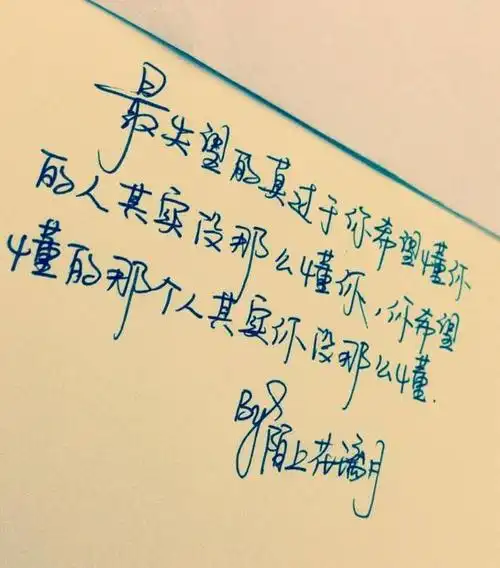 最失望的莫过于你希望懂你
的人其实没那么懂你，你希望
懂的那个人其实你没那么懂.
By 陌上花漓月